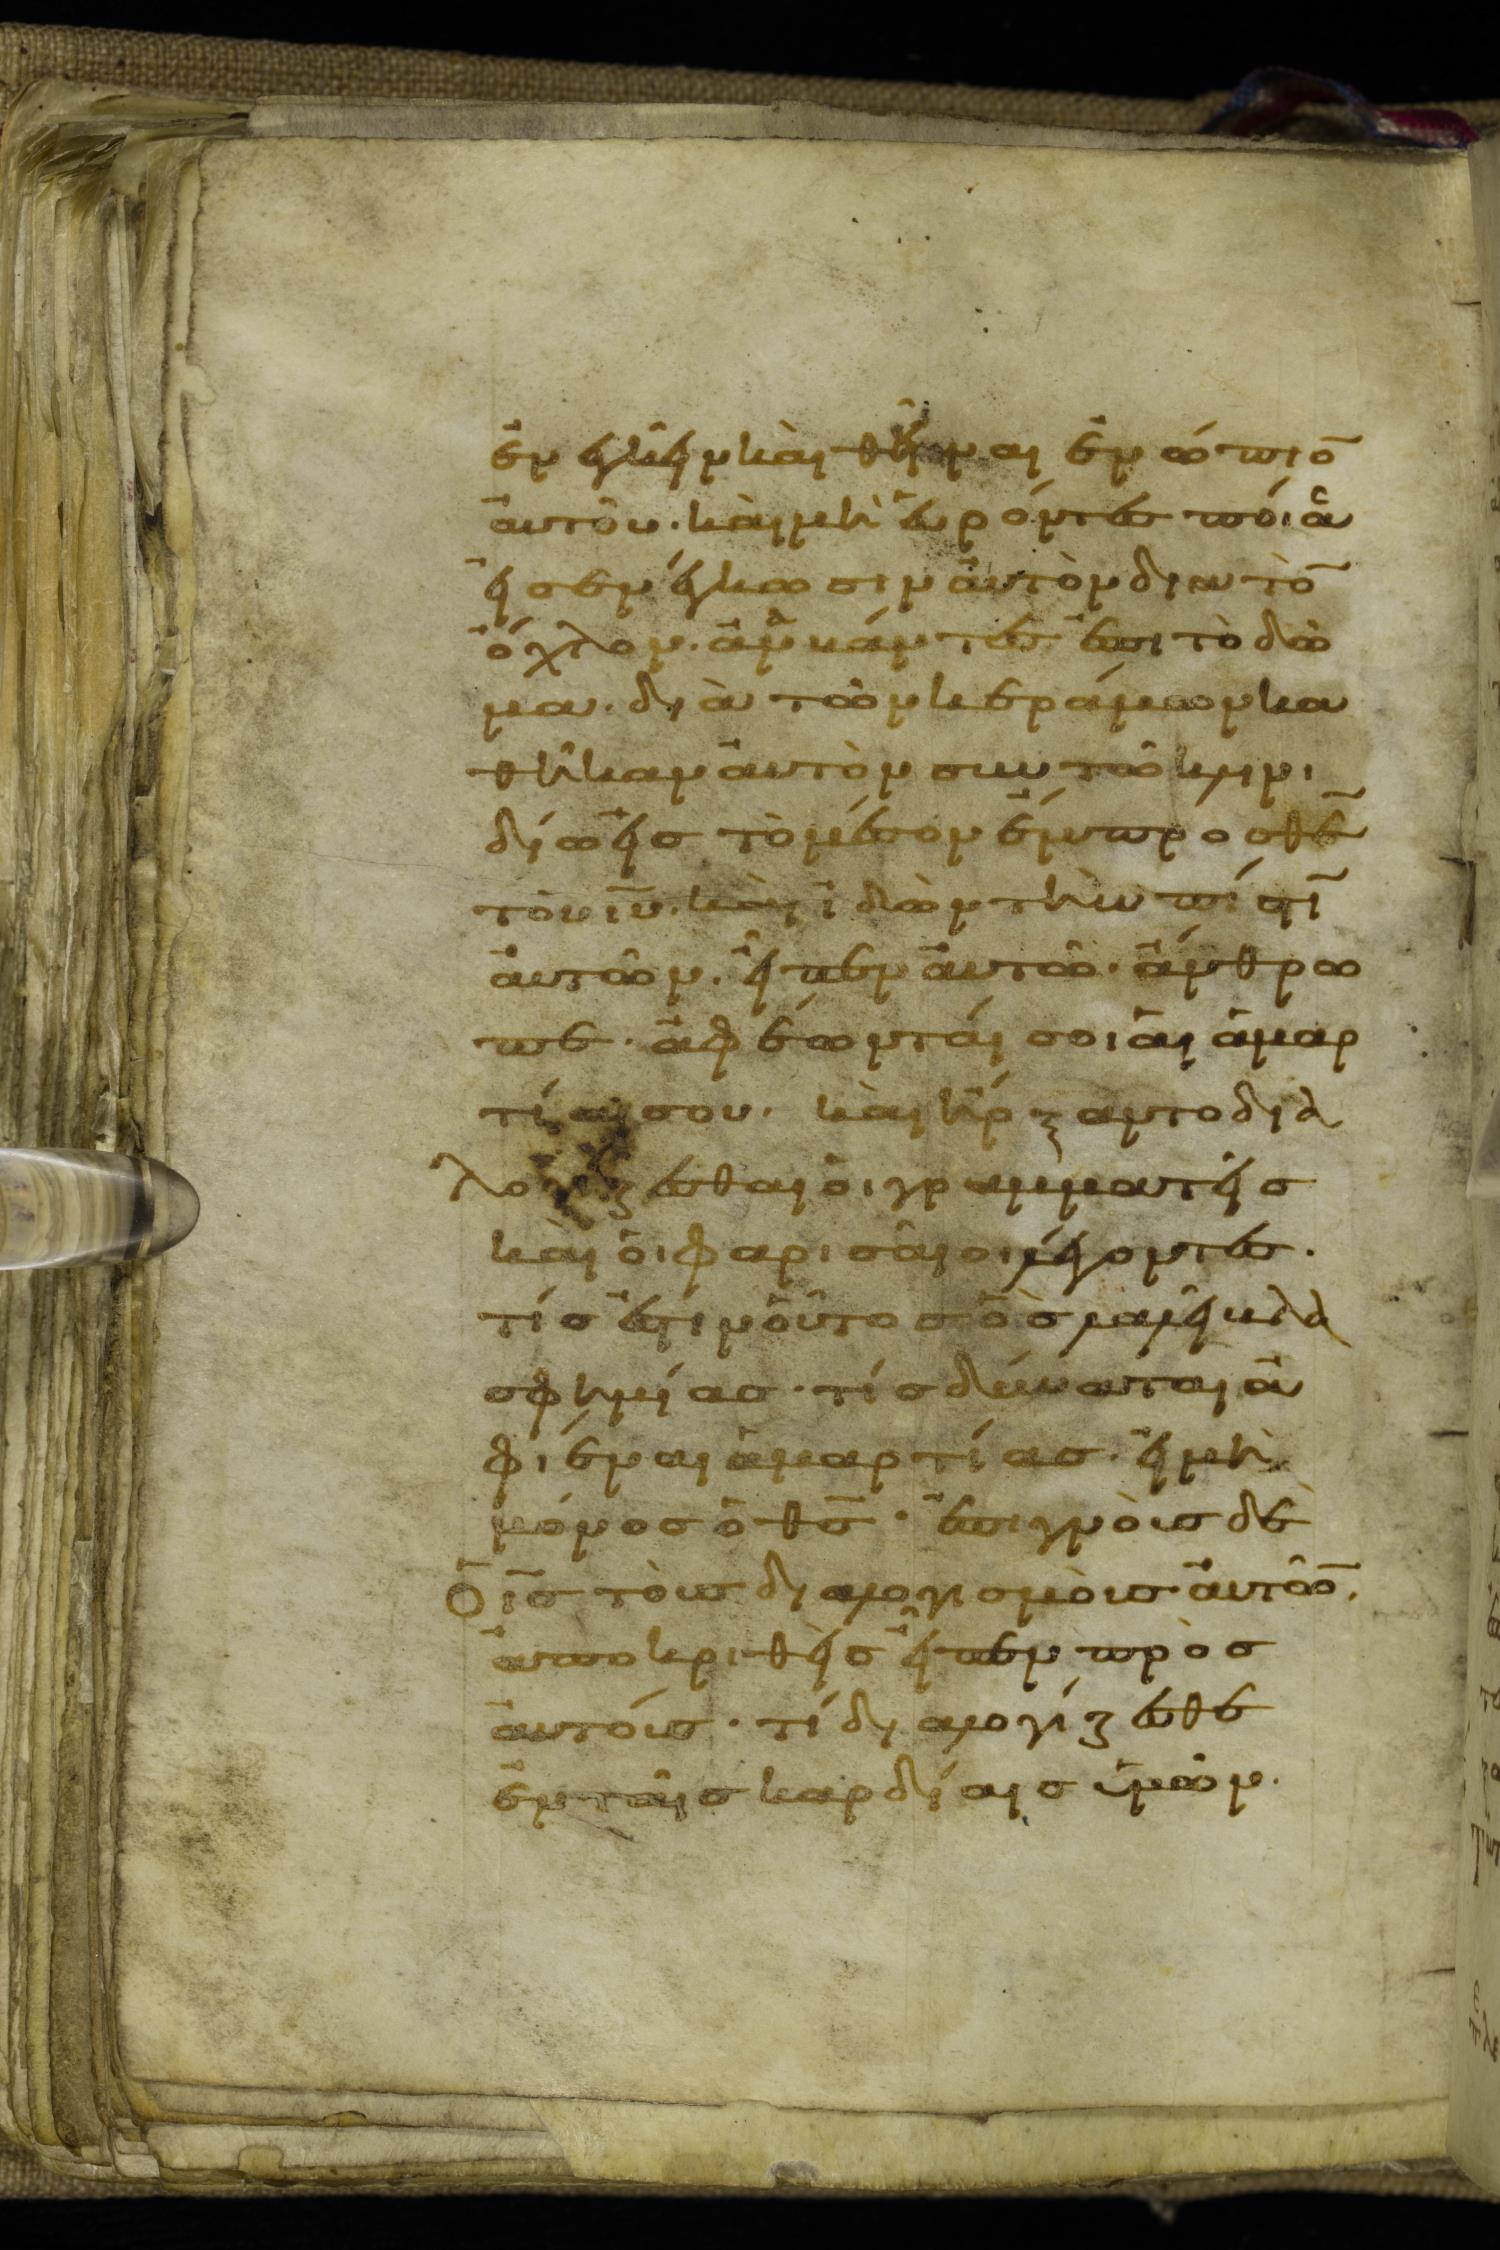 ἐν εγκεῖν καὶ θεῖναι ἐνώπιο̅
αὐτοῦ. καὶ μὴ εὑρόντες ποίας
εἰσενέγκωσιν αὐτὸν δια τὸ̅
ὄχλον. ἀναβάντες ἐπι τὸ δῶ
μα. διὰ τῶν κεράμων κα
θῆκαν αὐτὸν συν τῶ κλινι
δίω εἰς τὸ μέσον ἔμπροσθε̅
τοῦ ι̅υ̅. καὶ ἰδὼν τὴν πίστι̅
αὐτῶν. εἶπεν αὐτῶ. ἄνθρω
πε. ἀφέωνταί σοι αἱ ἁμαρ
τίαι σου. καὶ ἤρξαντο δια
λογίζεσθαι οἱ γραμματεῖς
καὶ οἱ φαρισαῖοι λέγοντες.
τίς ἐστιν οὗτος ὃς λαλεῖ βλα
σφημίας. τίς δύναται ἀ
φιέναι ἁμαρτίας. εἰ μὴ
μόνος ὁ θ̅ς̅. ἐπιγνοὺς δὲ
ὁ ι̅ς̅ τοὺς διαλογισμοὺς αὐτῶ̅.
ἀποκριθεὶς εἶπεν πρὸς
αὐτούς. τί διαλογίζεσθε
ἐν ταῖς καρδίαις ὑμῶν.